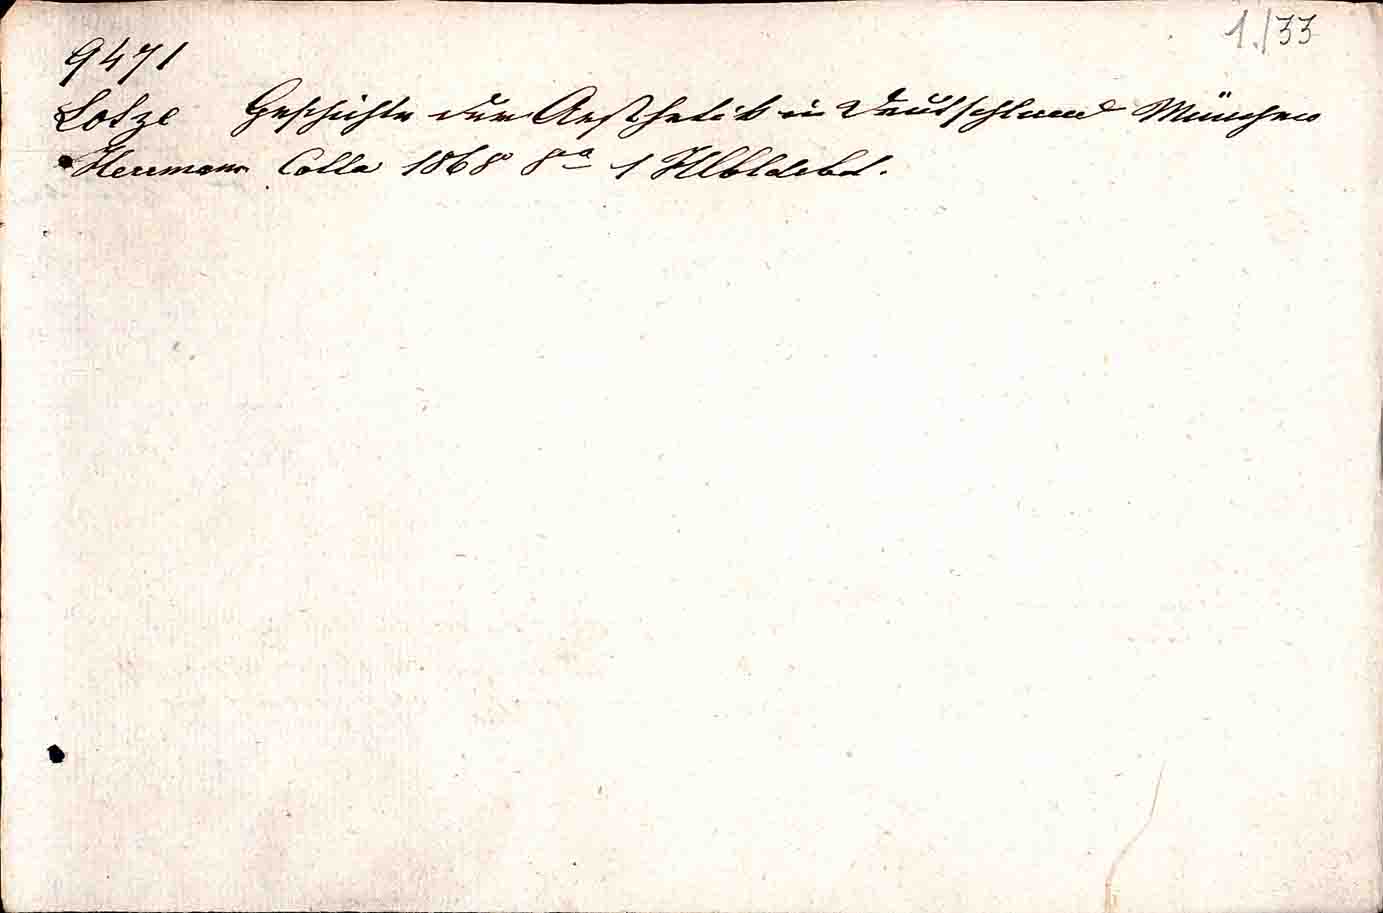 1./33
9471
Lotze Geschichte der Aesthetik in Deutschland München
Herrmann Cotta 1868 8º 1 Hlbldrbd.